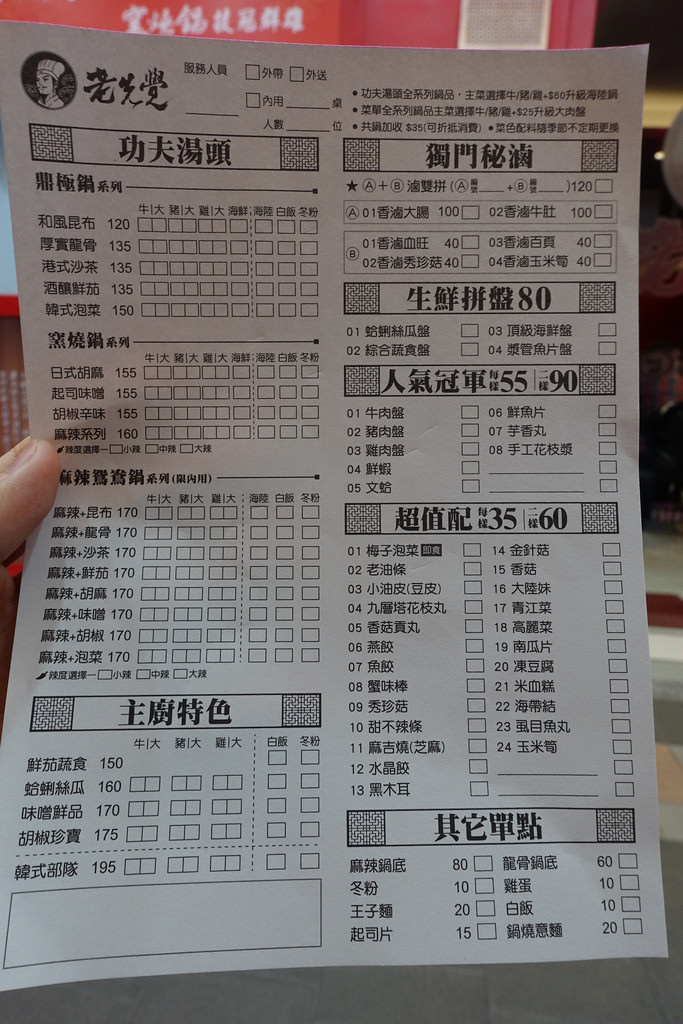 窯燒鍋技冠群雄
老先覺
服務人員 □外帶 □外送
□內用 ____ 桌
人數 ____ 位
• 功夫湯頭全系列鍋品，主菜選擇牛/豬/雞+$60升級海陸鍋
• 菜單全系列鍋品主菜選擇牛/豬/雞+$25升級大肉盤
• 共鍋加收 $35(可折抵消費) • 菜色配料隨季節不定期更換
功夫湯頭
鼎極鍋系列
牛|大 豬|大 雞|大 海鮮 海陸 白飯 冬粉
和風昆布 120
厚實龍骨 135
港式沙茶 135
酒釀鮮茄 135
韓式泡菜 150
窯燒鍋系列
牛|大 豬|大 雞|大 海鮮 海陸 白飯 冬粉
日式胡麻 155
起司味噌 155
胡椒辛味 155
麻辣系列 160
辣度選擇— □小辣 □中辣 □大辣
麻辣鴛鴦鍋系列(限內用)
牛|大 豬|大 雞|大 海陸 白飯 冬粉
麻辣+昆布 170
麻辣+龍骨 170
麻辣+沙茶 170
麻辣+鮮茄 170
麻辣+胡麻 170
麻辣+味噌 170
麻辣+胡椒 170
麻辣+泡菜 170
辣度選擇— □小辣 □中辣 □大辣
主廚特色
牛|大 豬|大 雞|大 白飯 冬粉
鮮茄蔬食 150
蛤蜊絲瓜 160
味噌鮮品 170
胡椒珍寶 175
韓式部隊 195
獨門秘滷
★ Ⓐ+Ⓑ 滷雙拼 (Ⓐ編號__+Ⓑ編號__)120 □
Ⓐ 01香滷大腸 100 □ 02香滷牛肚 100 □
Ⓑ 01香滷血旺 40 □ 03香滷百頁 40 □
02香滷秀珍菇 40 □ 04香滷玉米筍 40 □
生鮮拼盤80
01 蛤蜊絲瓜盤 □ 03 頂級海鮮盤 □
02 綜合蔬食盤 □ 04 漿管魚片盤 □
人氣冠軍每樣55|二樣90
01 牛肉盤 □ 06 鮮魚片 □
02 豬肉盤 □ 07 芋香丸 □
03 雞肉盤 □ 08 手工花枝漿 □
04 鮮蝦 □
05 文蛤 □
超值配每樣35|二樣60
01 梅子泡菜 即食 □ 14 金針菇 □
02 老油條 □ 15 香菇 □
03 小油皮(豆皮) □ 16 大陸妹 □
04 九層塔花枝丸 □ 17 青江菜 □
05 香菇貢丸 □ 18 高麗菜 □
06 燕餃 □ 19 南瓜片 □
07 魚餃 □ 20 凍豆腐 □
08 蟹味棒 □ 21 米血糕 □
09 秀珍菇 □ 22 海帶結 □
10 甜不辣條 □ 23 虱目魚丸 □
11 麻吉燒(芝麻) □ 24 玉米筍 □
12 水晶餃 □
13 黑木耳 □
其它單點
麻辣鍋底 80 □ 龍骨鍋底 60 □
冬粉 10 □ 雞蛋 10 □
王子麵 20 □ 白飯 10 □
起司片 15 □ 鍋燒意麵 20 □